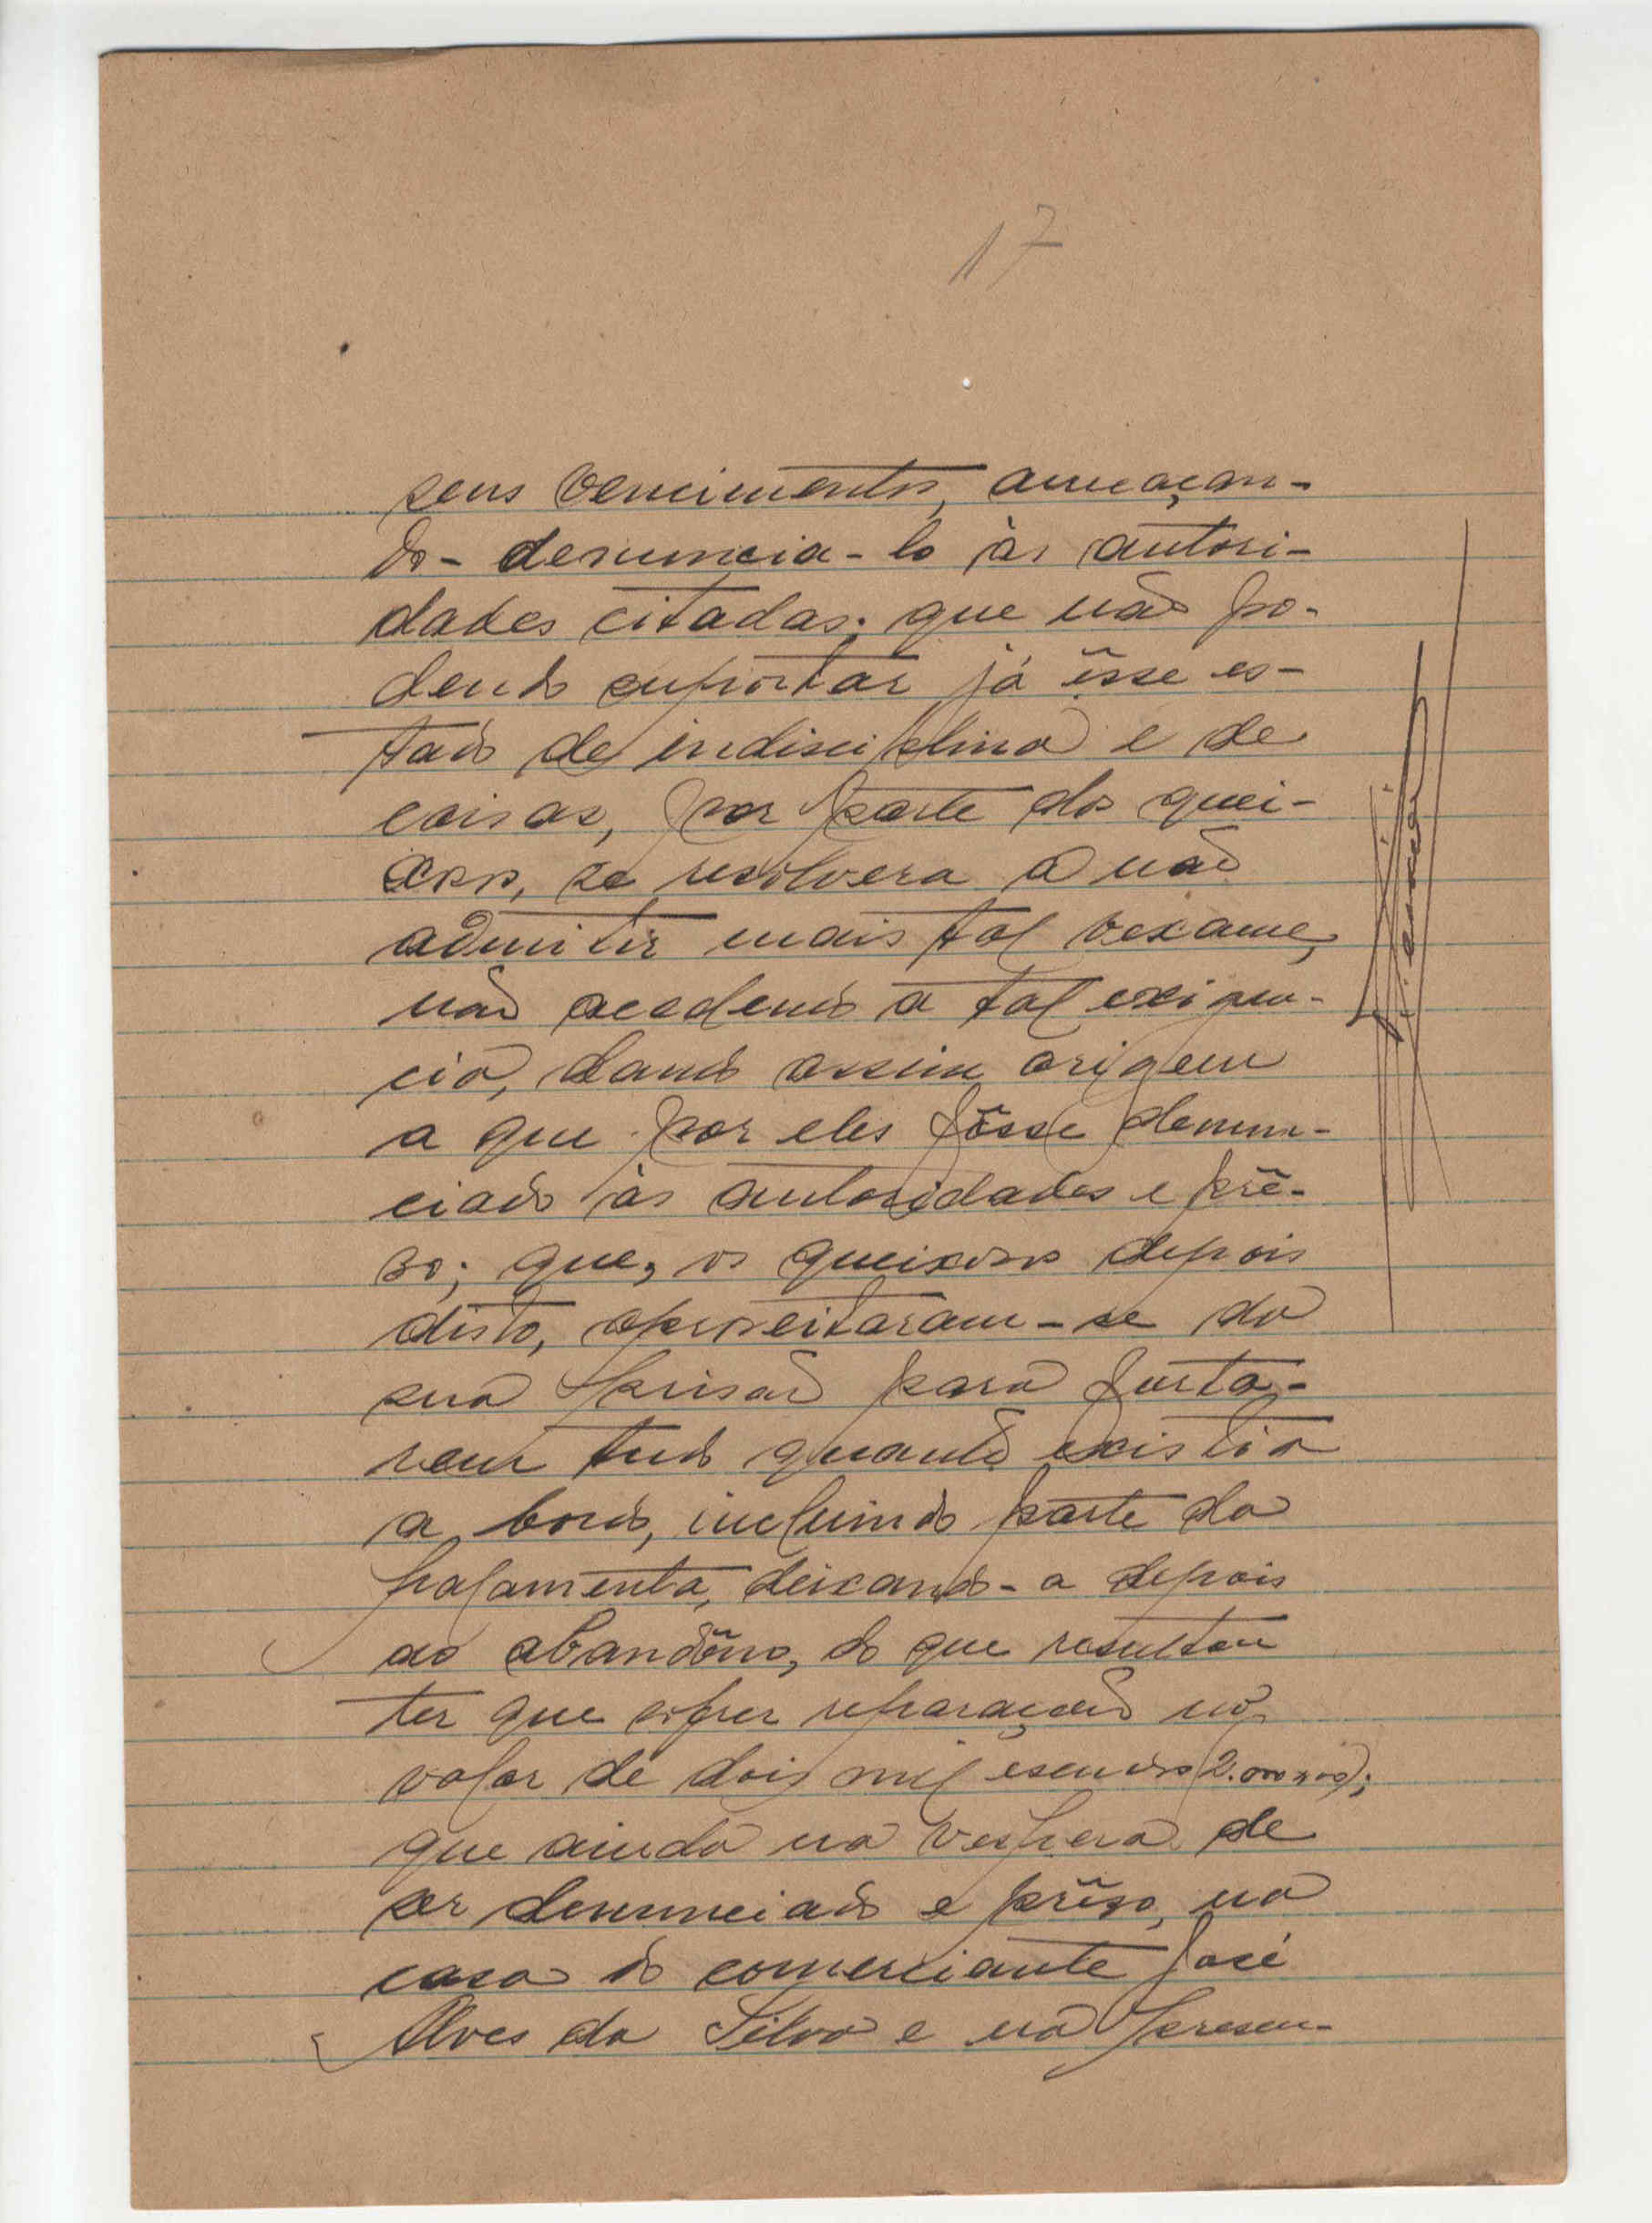 17
seus vencimentos, ameaçan-
do-denuncia-lo às autori-
dades citadas; que não po-
dendo suportar já êsse es-
tado de indisciplina e de
coisas, por parte dos quei-
xosos, se resolvera a não
admitir mais tal vexame,
não acedendo a tal exigen-
cia, dando assim origem
a que por eles fôsse denun-
ciado às autoridades e prê-
so; que, os queixosos depois
disto, aproveitaram-se da
sua prisão para furta-
rem tudo quanto existia
a bordo, incluindo parte da
palamenta, deixando-a depois
ao abandôno, do que resultou
ter que sofrer reparação no
valor de dois mil escudos (2.000$00);
que ainda na vespera de
ser denunciado e prêso, na
casa do comerciante José
Alves da Silva e na presen-